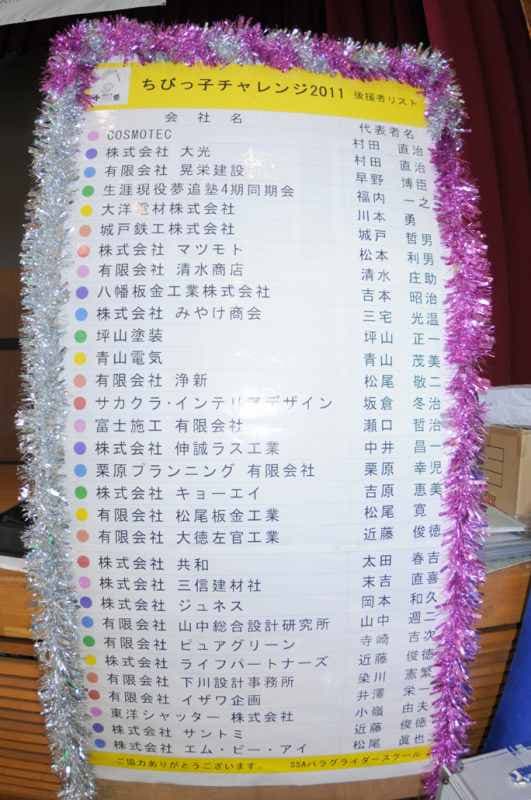 ちびっ子チャレンジ2011 後援者リスト
会社名 代表者名
COSMOTEC 村田 直治
株式会社 大光 村田 直治
有限会社 晃栄建設 早野 博臣
生涯現役夢追塾4期同期会 福内 一之
大洋電材株式会社 川本 勇
城戸鉄工株式会社 城戸 哲男
株式会社 マツモト 松本 利男
有限会社 清水商店 清水 庄助
八幡板金工業株式会社 吉本 昭治
株式会社 みやけ商会 三宅 光温
坪山塗装 坪山 正一
青山電気 青山 茂美
有限会社 浄新 松尾 敬二
サカクラ・インテリアデザイン 坂倉 冬治
富士施工 有限会社 瀬口 哲治
株式会社 伸誠ラス工業 中井 昌一
栗原プランニング 有限会社 栗原 幸児
株式会社 キョーエイ 吉原 恵美
有限会社 松尾板金工業 松尾 寛
有限会社 大徳左官工業 近藤 俊徳
株式会社 共和 太田 春吉
株式会社 三信建材社 末吉 直喜
株式会社 ジュネス 岡本 和久
有限会社 山中総合設計研究所 山中 週二
有限会社 ピュアグリーン 寺崎 吉次
株式会社 ライフパートナーズ 近藤 俊徳
有限会社 下川設計事務所 染川 憲繁
有限会社 イザワ企画 井澤 栄一
東洋シャッター 株式会社 小嶺 由夫
株式会社 サントミ 近藤 俊徳
株式会社 エム・ビー・アイ 松尾 眞也
ご協力ありがとうございます。 SSAパラグライダースクール